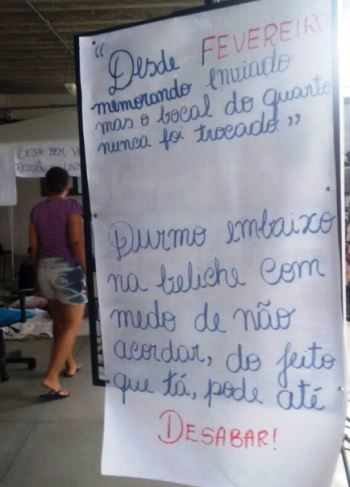 "Desde FEVEREIRO
memorando enviado
mas o bocal do quarto
nunca foi trocado."
Durmo embaixo
na beliche com
medo de não
acordar, do jeito
que tá, pode até
DESABAR!
SEJAM BEM VI
RESIDÊNCIA UNI